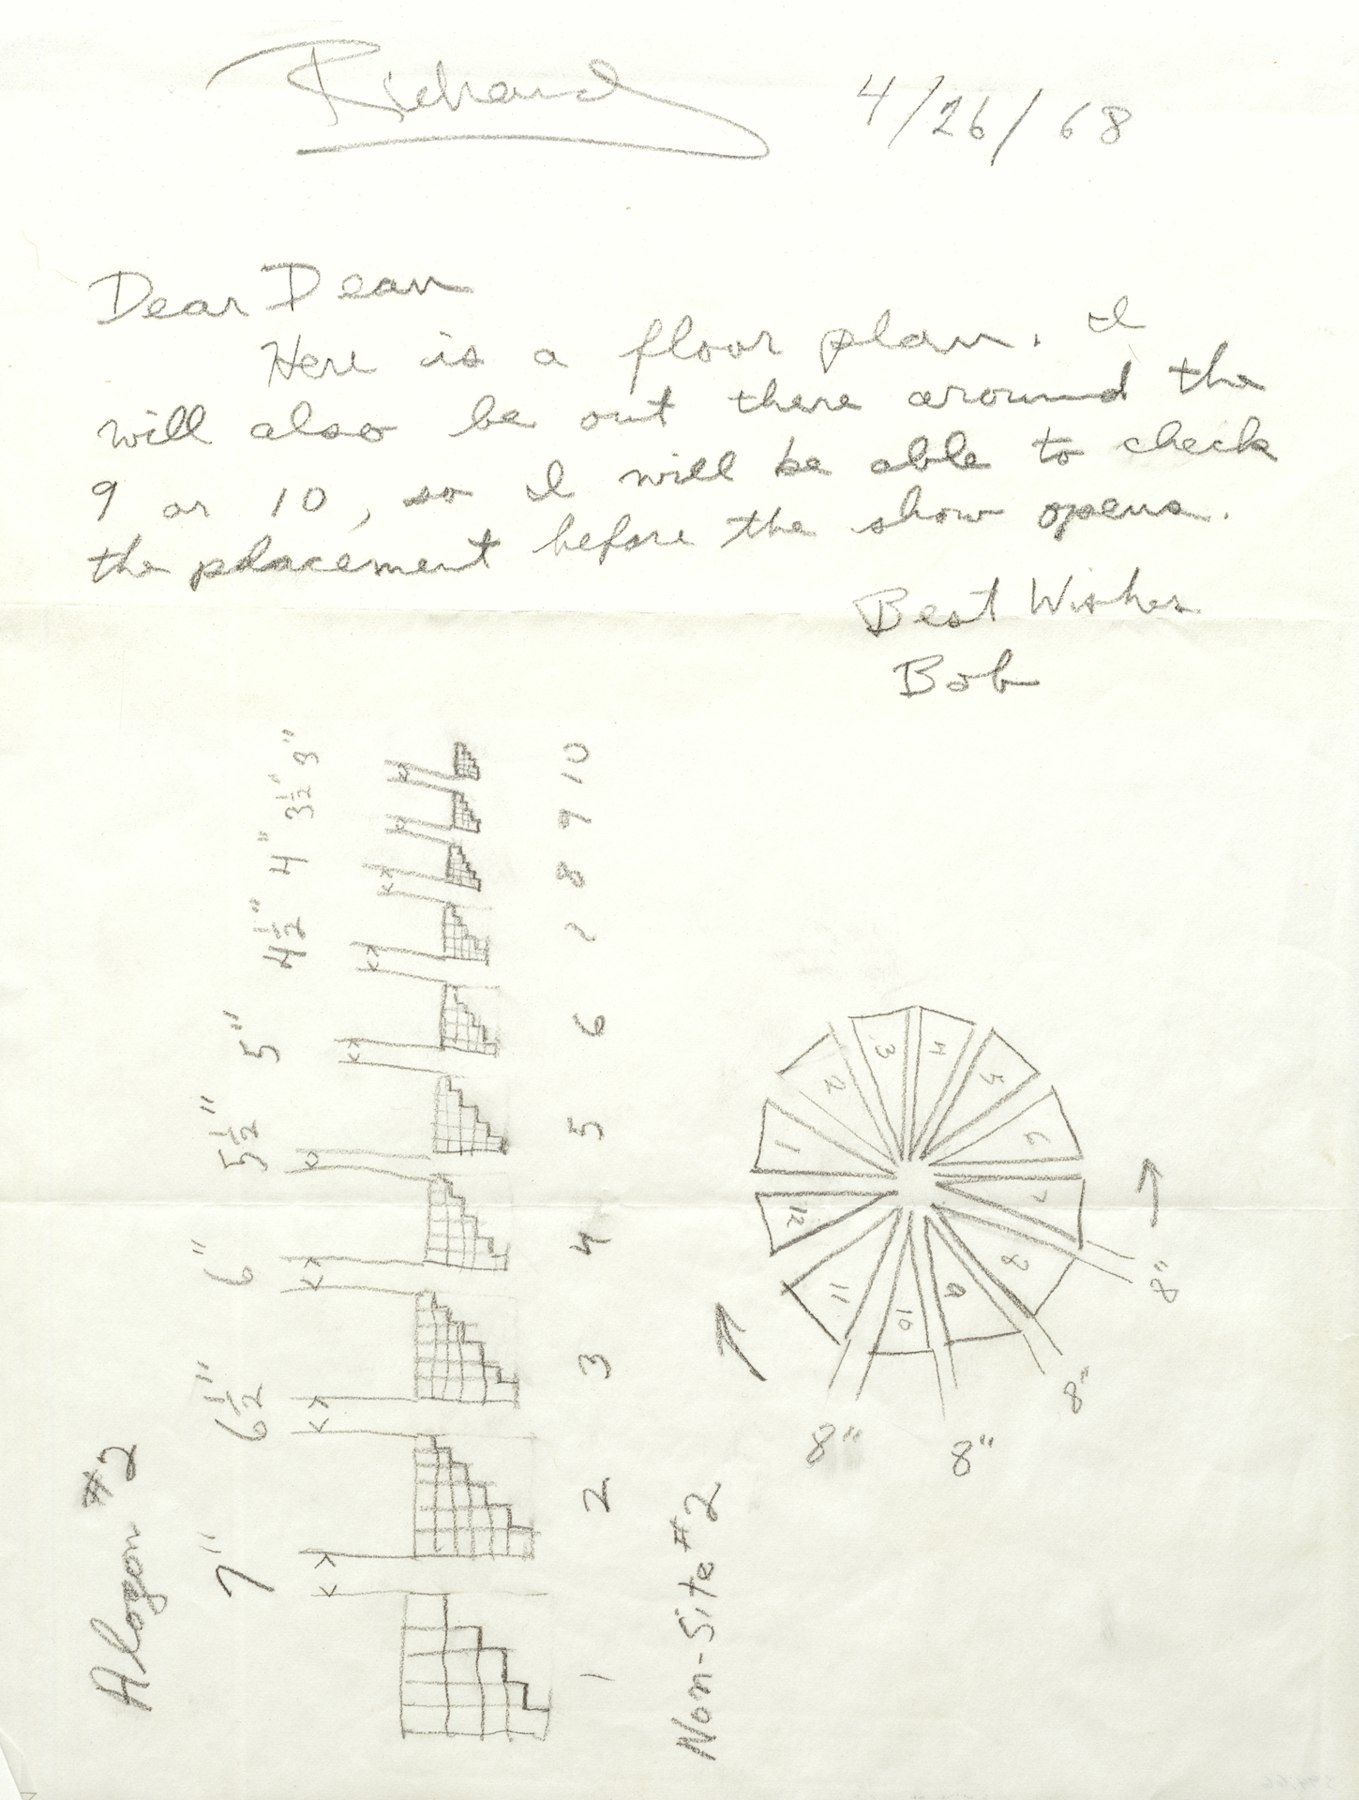 Richard
4/26/68
Dear Dean
Here is a floor plan. I
will also be out there around the
9 or 10, so I will be able to check
the placement before the show opens.
Best Wishes
Bob
Alogon #2
7" 6 1/2" 6" 5 1/2" 5" 4 1/2" 4" 3 1/2" 3"
1 2 3 4 5 6 7 8 9 10
Non-Site #2
1 2 3 4 5 6 7 8 9 10 11 12
8" 8" 8" 8"